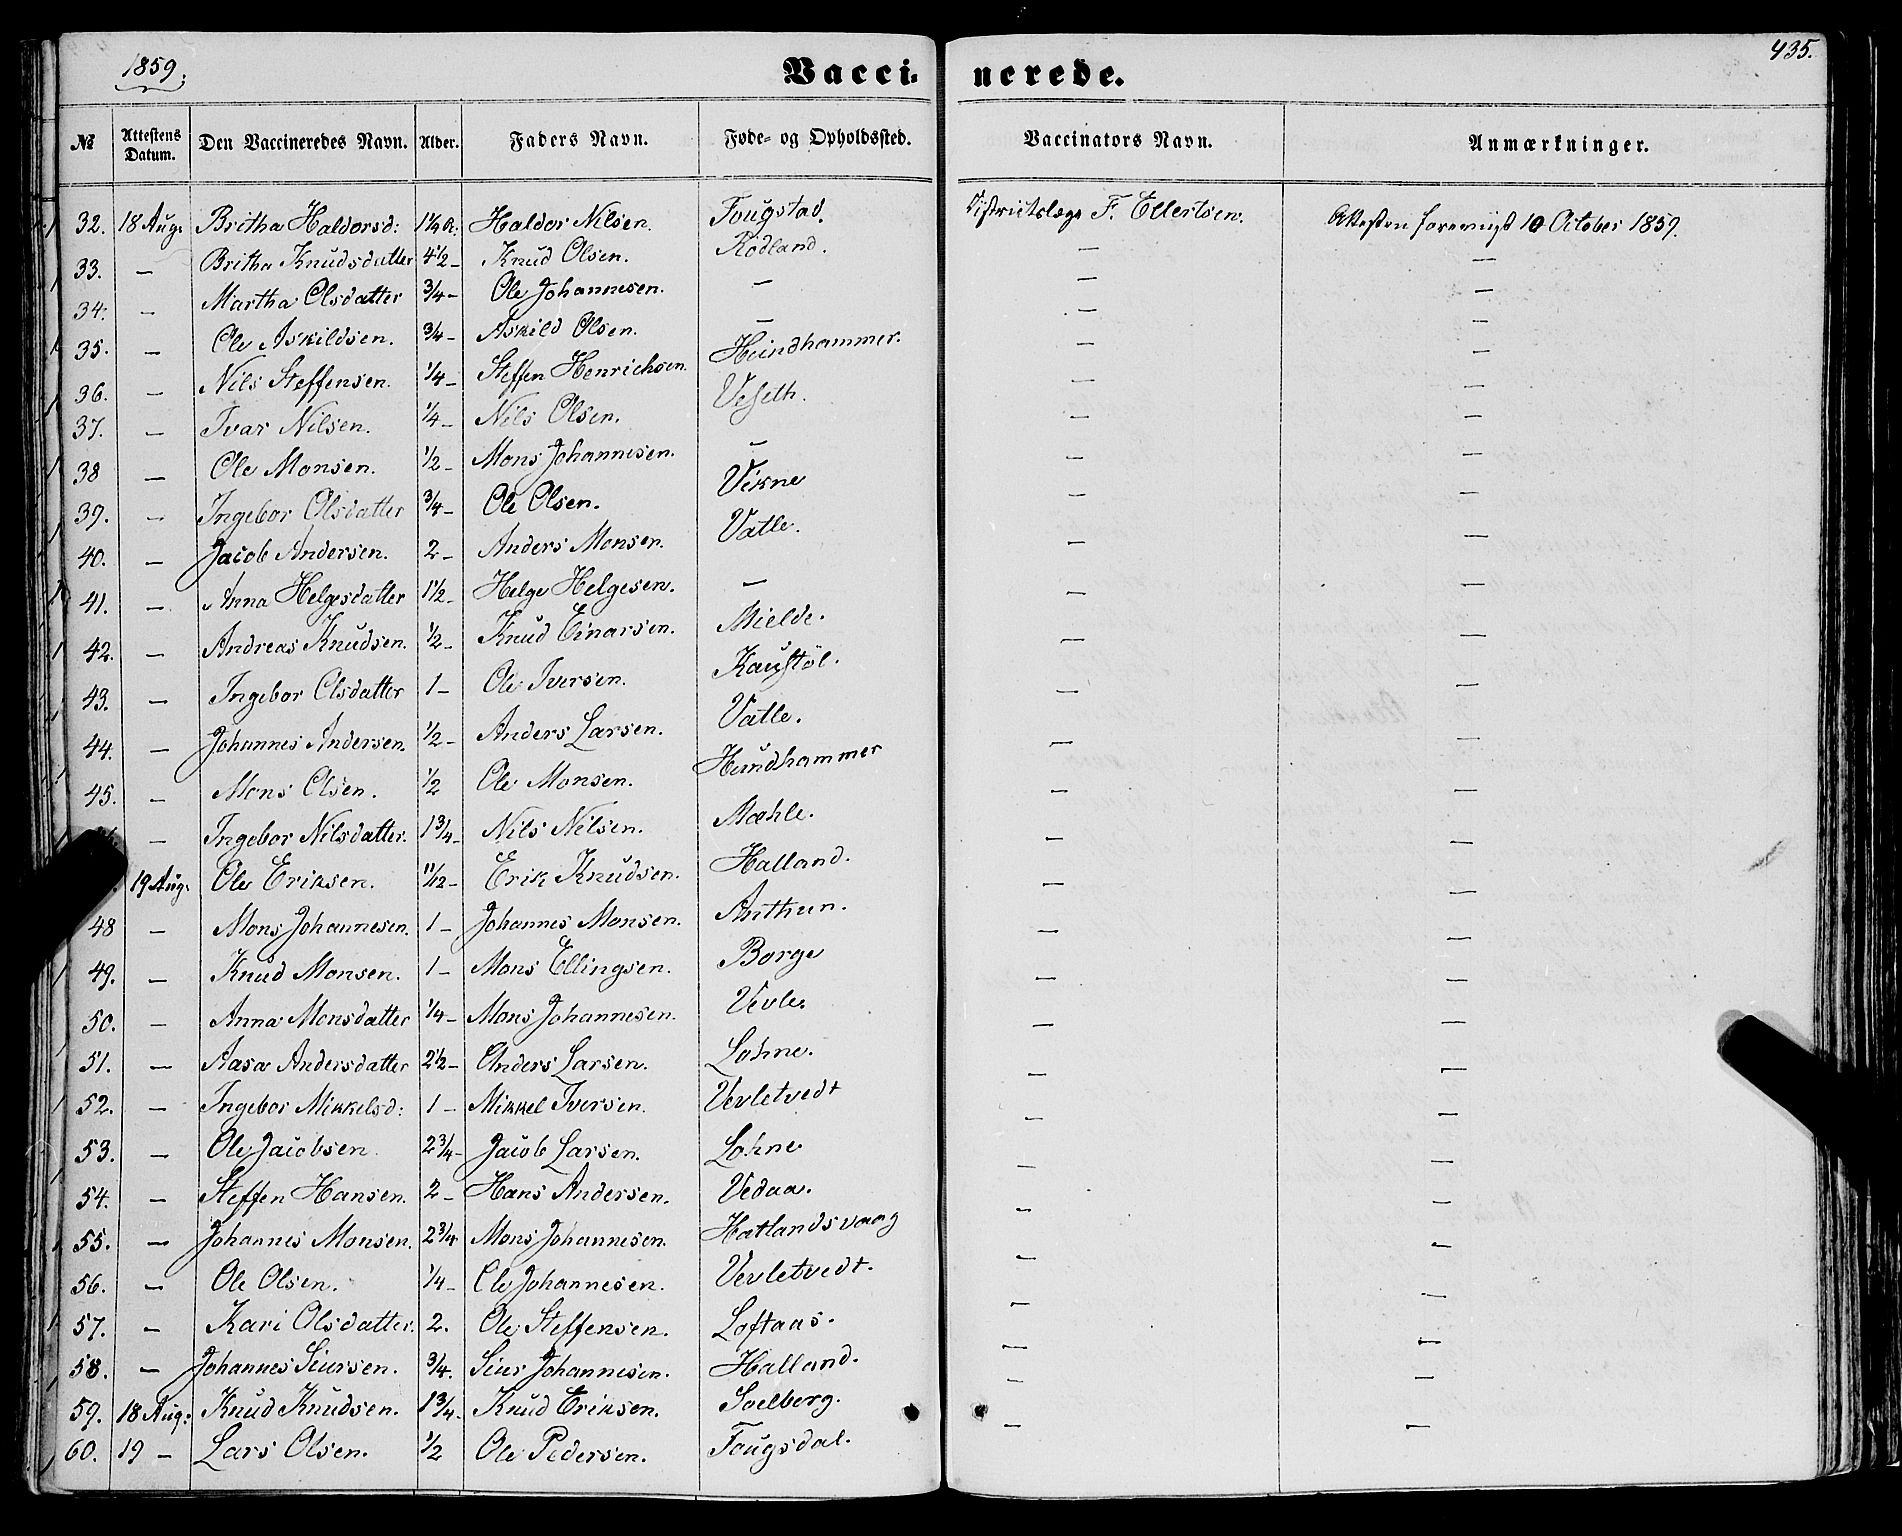 1859.
Vaccinerede.
435.
№ Attestens Datum. Den Vaccineredes Navn. Alder. Faders Navn. Føde- og Opholdssted. Vaccinators Navn. Anmærkninger.
32. 18 Aug: Britha Haldorsd: 1 1/4 A: Haldor Nilsen. Fougstad. Distriktslæge F. Ellertsen. Attesten foreviist 10 October 1859.
33. — Britha Knudsdatter 4 1/2 — Knud Olsen. Rödland. — —
34. — Martha Olsdatter 3/4 — Ole Johannesen. — — —
35. — Ole Askildsen. 3/4 — Askild Olsen. — — —
36. — Nils Steffensen. 1/4 — Steffen Henrichsen. Hundhammer. — —
37. — Ivar Nilsen. 1/4 — Nils Olsen. Veseth. — —
38 — Ole Monsen. 1/2 — Mons Johannesen. — — —
39. — Ingebor Olsdatter 3/4 — Ole Olsen. Vikne — —
40. — Jacob Andersen. 2 — Anders Monsen. Vatle. — —
41. — Anna Helgesdatter 1 1/2 — Helge Helgesen. — — —
42. — Andreas Knudsen. 1/2 — Knud Einarsen. Mielde. — —
43. — Ingebor Olsdatter 1 — Ole Iversen. Kaustöl. — —
44. — Johannes Andersen. 1/2 — Anders Larsen. Vatle. — —
45. — Mons Olsen. 1/2 Ole Monsen. Hundhammer — —
— Ingebor Nilsdatter. 1 3/4 — Nils Nilsen. Mæhle. — —
19 Aug: Ole Eriksen. 11/12 — Erik Knudsen. Halland. — —
48 — Mons Johannesen. 1 — Johannes Monsen. Arthun. — —
49. — Knud Monsen. 1 — Mons Ellingsen. Borge — —
50. — Anna Monsdatter 1/4 — Mons Johannesen. Vevle. — —
51. — Aasa Andersdatter 2 1/2 — Anders Larsen. Lohne. — —
52. — Ingebor Mikkelsd: 1 — Mikkel Iversen. Vevletvedt — —
53. — Ole Jacobsen 2 3/4 — Jacob Larsen. Lohne — —
54. — Steffen Hansen. 2 — Hans Andersen. Vedaa. — —
55. — Johannes Monsen. 2 3/4 Mons Johannesen. Hatlandsvaag — —
56. — Ole Olsen. 1/4 — Ole Johannesen. Vevletvedt. — —
57. — Kari Olsdatter. 2. Ole Steffensen. Loftaas. — —
58. — Johannes Siursen. 3/4. Siur Johannesen. Halland. — —
59. 18 Aug: Knud Knudsen. 1 3/4. Knud Eriksen. Soelberg. — —
60. 19 — Lars Olsen. 1/2 Ole Pedersen. Fougsdal. — —